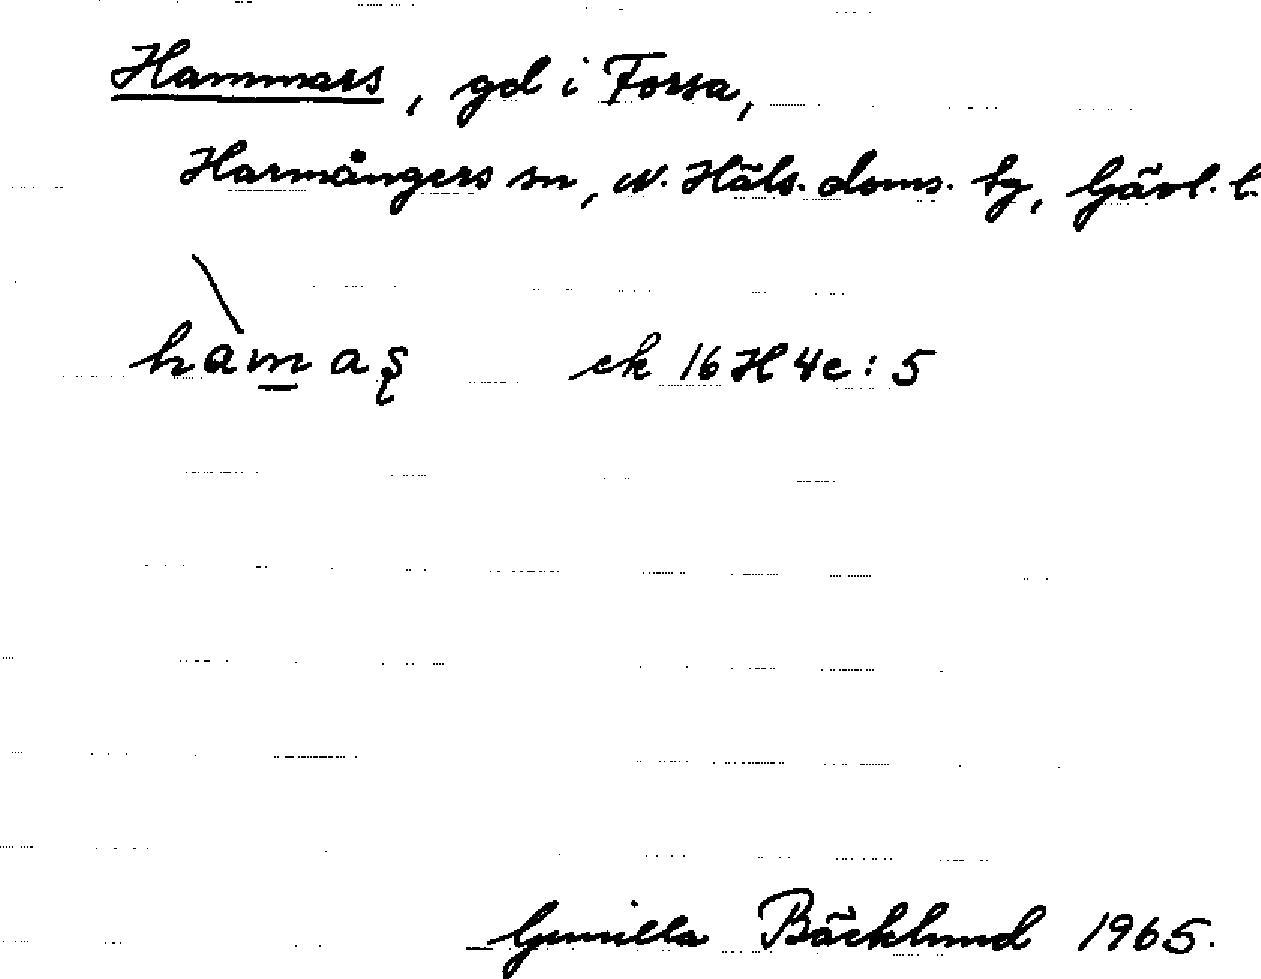 Hammars, gd i Forsa,
Harmångers sn, N. Häls. doms. tg, Gävl. l.
hàm̲aʂ ek 16H4c:5
Gunilla Bäcklund 1965.